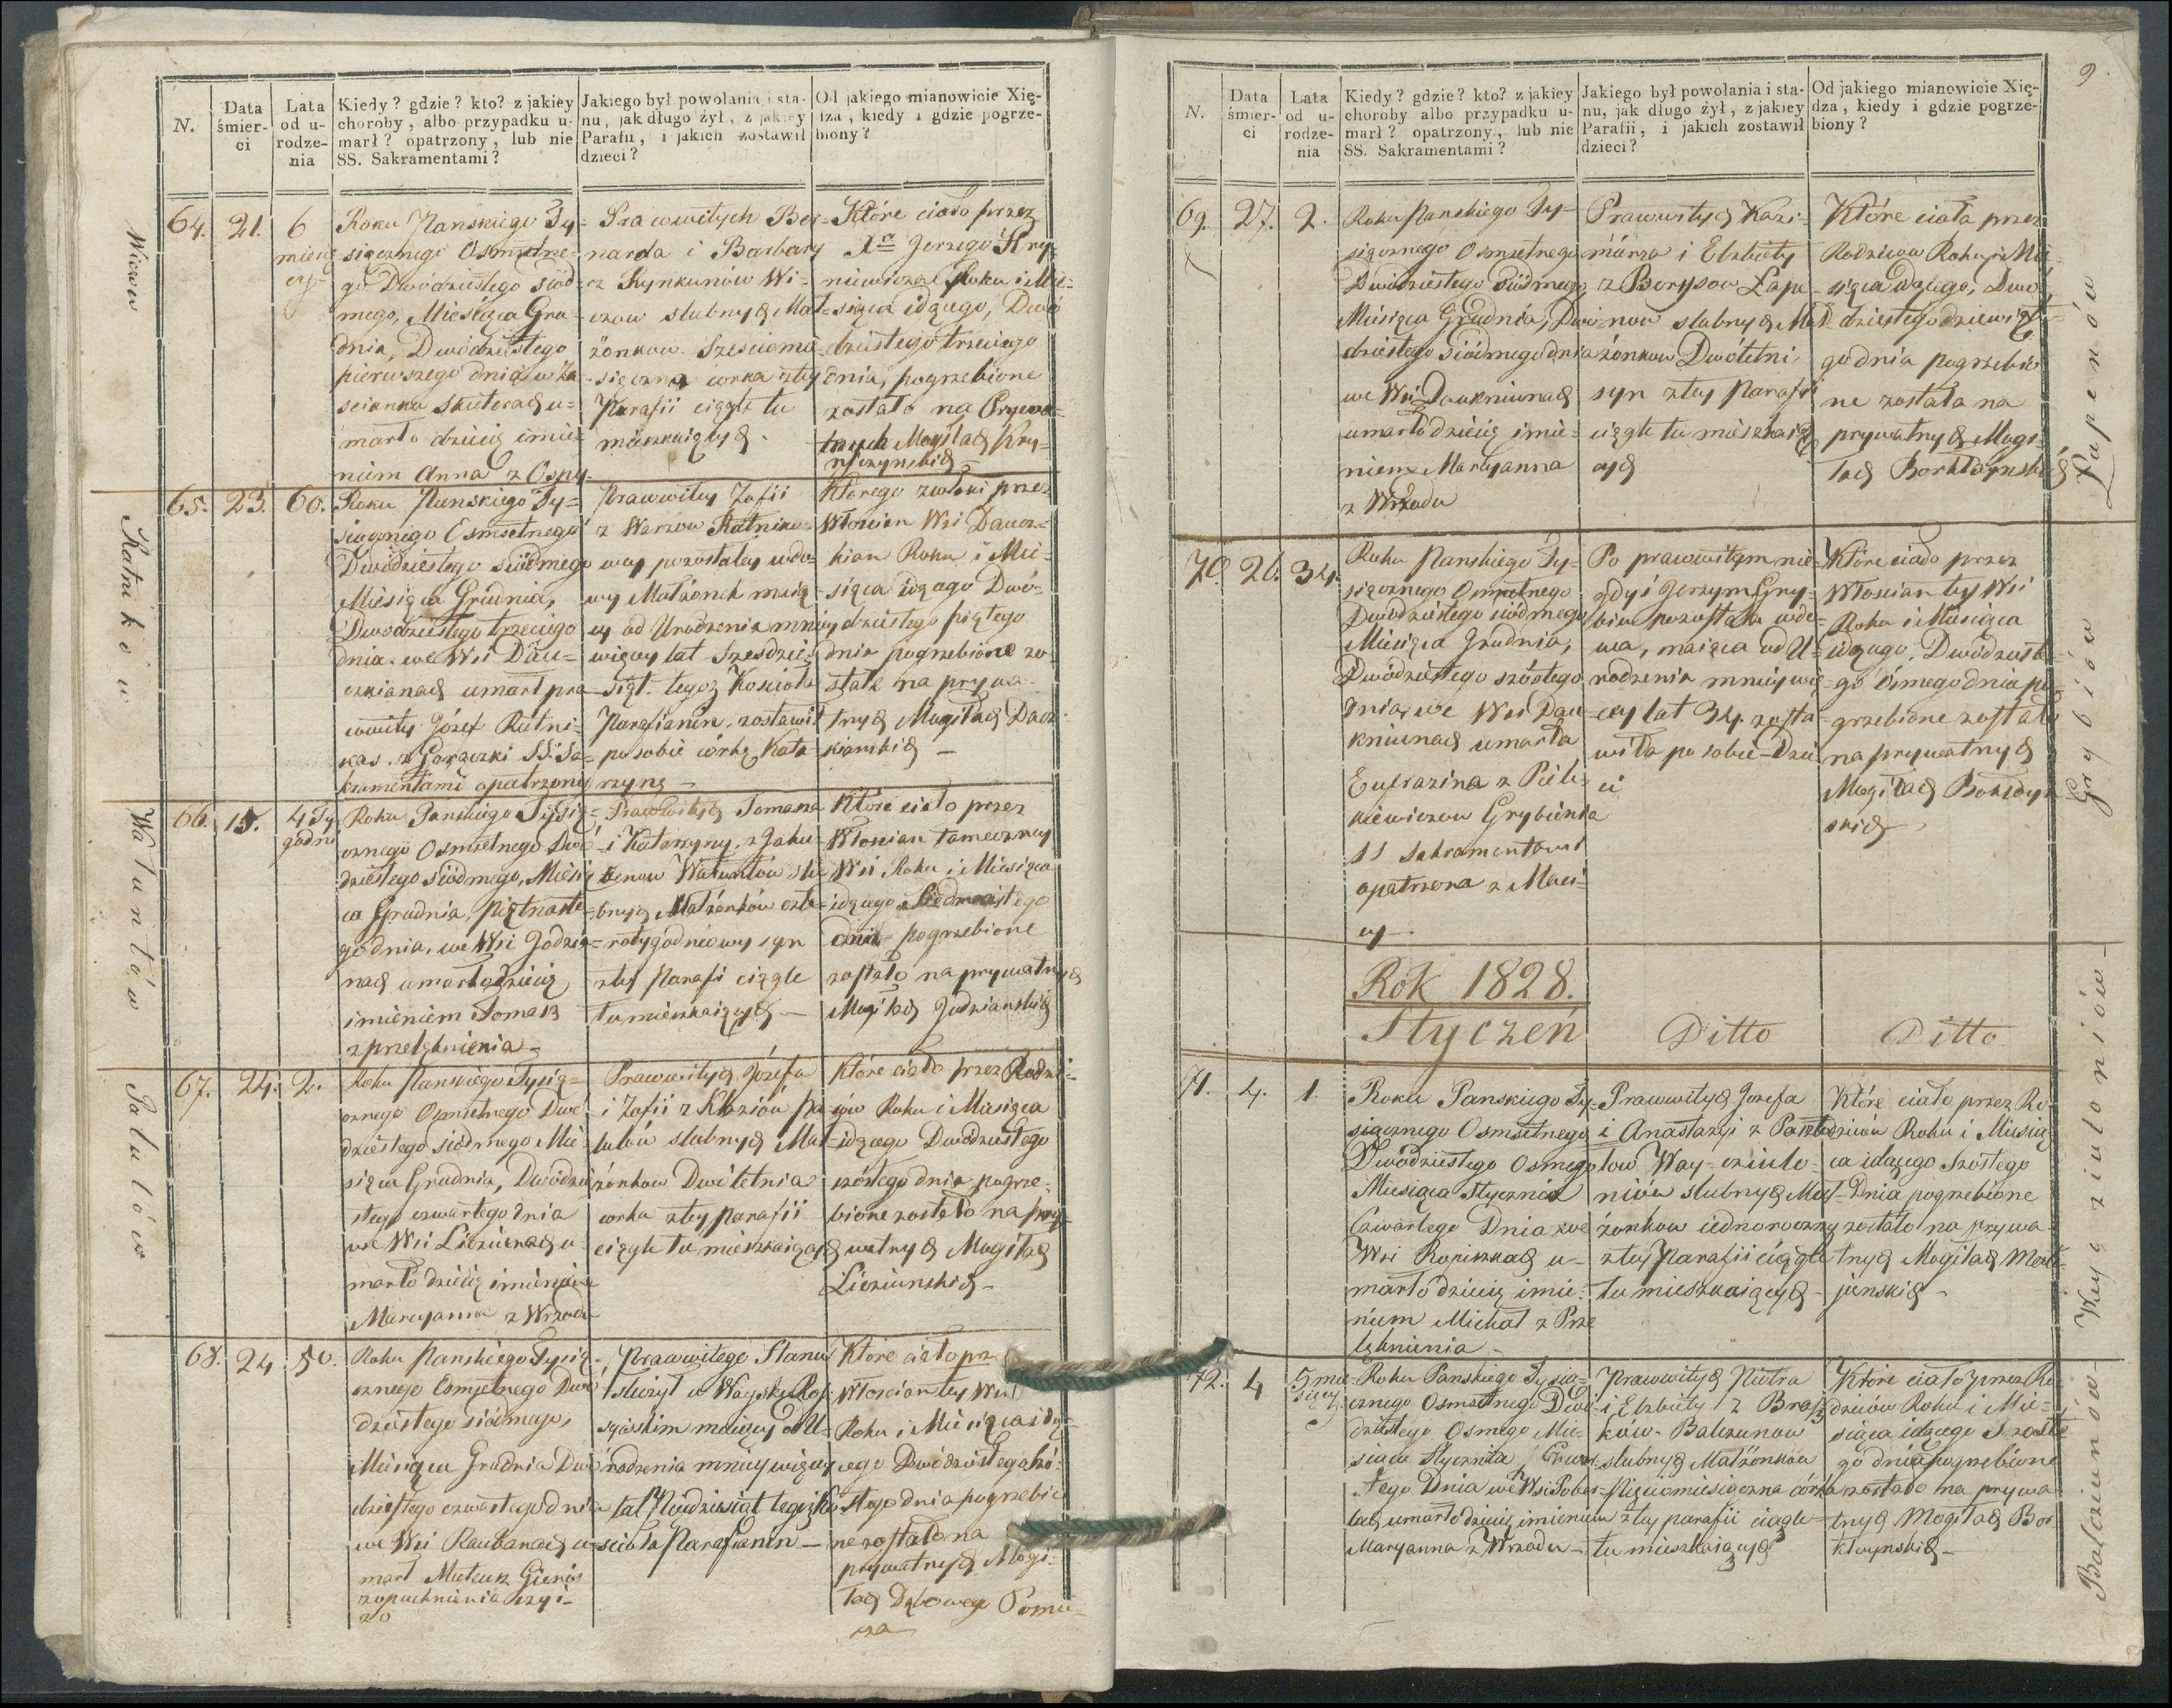 N.
Data śmier-ci
Lata od u-rodze-nia
Kiedy? gdzie? kto? z jakiey
choroby, albo przypadku u-
marł? opatrzony, lub nie
SS. Sakramentami?
Jakiego był powołania i sta-
nu, jak długo żył, z jakiey
Parafii, i jakich zostawił
dzieci?
Od jakiego mianowicie Xię-
dza, kiedy i gdzie pogrze-
biony?
Wiczow
64.
21.
6
miesię
cy
Roku Panskiego Ty-
siącznego Osmsetne-
go Dwódziestego siód-
mego, Miesiąca Gru-
dnia, Dwódziestego
pierwszego dnia w Za
scianku Skuterach u-
marło dziecię imie-
niem Anna z Ospy.
Prawowitych Ber-
narda i Barbary
z Rynkunów Wi-
czow slubnych Mał-
żonkow. Szesciomie-
sięczna corka z tey
Parafii ciągle tu
mieszkaiących.
Które ciało przez
Xa Jerzego Kry-
niewicza Roku i Mie-
siąca idącego, Dwó
dziestego trzeciego
dnia, pogrzebione
zostało na Prywa-
tnych Mogiłach Kry-
niczynskich
Ratnikow
65.
23.
60.
Roku Panskiego Ty-
siącznego Osmsetnego
Dwódziestego siódmego
Miesiąca Grudnia,
Dwódziestego trzeciego
dnia. we Wsi Dau-
czkianach umarł pra
wowity Józef Ratni-
kas. z Gorączki SS. Sa-
kramentami opatrzony
Prawowitey Zofii
z Warzow Ratniko-
wey pozostałey wdo-
wy Małżonek maią-
cy od Urodzenia mniey
więcey lat Szesdzie-
siąt. tegoż Kościoła
Parafianin. zostawił
po sobie córkę Kata
rzynę
Którego zwłoki przez
Włoscian Wsi Daucz-
kian Roku i Mie-
siąca idącego Dwó-
dziestego piątego
dnia pogrzebione zo-
stałe na prywa-
tnych Mogiłach Dacz-
kianskich
Watuntów
66.
15.
4 Ty
godni
Roku Panskiego Tysią-
cznego Osmsetnego Dwó-
dziestego siódmego, Miesią
ca Grudnia, Piętnaste-
go dnia, we Wsi Godzia-
nach umarło dziecię
imieniem Tomasz
z przelęknienia
Prawowitych Tomasza
i Katarzyny z Jaku-
benow Watuntów slu
bnych Małżonków czte-
rotygodniowy syn
z tey Parafi ciągle
tu mieszkaiących
Które ciało przez
Włoscian tameczney
Wsi Roku i Miesiąca
idącego Siedmnastego
dnia pogrzebione
zostało na prywatnych
Mogiłach Godzianskich
Patulów
67.
24.
2.
Roku Panskiego Tysią-
cznego Osmsetnego Dwó-
dziestego siódmego Mie-
siąca Grudnia, Dwódzie
stego czwartego dnia
we Wsi Liczunach u-
marło dziecię imieniem
Maryanna z Wrzodu
Prawowitych Józefa
i Zofii z Pa
tulów slubnych Mał-
żonkow Dwóletnia
corka z tey Parafii
ciągle tu mieszkaiących
Które ciało przez Rodzi-
ców Roku i Miesiąca
idącego Dwódziestego
szóstego dnia pogrze-
bione zostało na pry-
watnych Mogiłach
Licziunskich
68.
24.
50.
Roku Panskiego Tysią-
cznego Osmsetnego Dwó
dziestego siódmego,
Miesiąca Grudnia Dwó
dziestego czwartego dnia
we Wsi Raubanach u-
marł Mateusz
z opuchnienia szyi-
Prawowitego Stanu
służył w Woysku Ros-
syiskim maiący od U-
rodzenia mniey więcey
lat Pięćdziesiąt tegoż Ko-
scioła Parafianin
Które ciało prz
Włoscian tey Wsi
Roku i Miesiąca idą-
cego Dwódziestego szó-
stego dnia pogrzebio
ne zostało na
prywatnych Mogi-
łach Dębowego Pomu-
sza
9.
N.
Data śmier-ci
Lata od u-rodze-nia
Kiedy? gdzie? kto? z jakiey
choroby albo przypadku u-
marł? opatrzony, lub nie
SS. Sakramentami?
Jakiego był powołania i sta-
nu, jak długo żył, z jakiey
Parafii, i jakich zostawił
dzieci?
Od jakiego mianowicie Xię-
dza, kiedy i gdzie pogrze-
biony?
69.
27.
2.
Roku Panskiego Ty-
siącznego Osmsetnego
Dwódziestego Siódmego
Miesiąca Grudnia, Dwó
dziestego siódmego dnia
we Wsi Daukniunach
umarło dziecię imie-
niem Maryanna
z Wrzodu
Prawowitych Kazi-
mierza i Elzbiety
z Borysow Łape-
now slubnych Mał-
żonkow Dwóletni
syn z tey Parafii
ciągle tu mieszkaią
cych
Które ciała przez
Rodzicow Roku i Mie-
siąca idącego, Dwó-
dziestego dziewiąte-
go dnia pogrzebio
ne została na
prywatnych Mogi-
łach Borkłoynskich
Łapenów
70.
26.
34.
Roku Panskiego Ty-
siącznego Osmsetnego
Dwódziestego siódmego
Miesiąca Grudnia,
Dwódziestego szóstego
dnia, we Wsi Dau-
kniunach umarła
Eufrazina z Piet-
kiewiczow Grybienia
SS Sakramentami
opatrzona z Maci-
cy
Po prawowitym nie-
gdyś Jerzym Gry-
biu pozostała wdo-
wa, maiąca od U-
rodzenia mniey wię
cey lat 34. zosta-
wiła po sobie Dzie
ci
Które ciało przez
Włoscian tey Wsi
Roku i Miesiąca
idącego, Dwódzieste-
go ósmego dnia po
grzebione zostało
na prywatnych
Mogiłach
skich
Grybiów
Rok 1828.
Styczeń
Ditto
Ditto
71.
4.
1.
Roku Panskiego Ty-
siącznego Osmsetnego
Dwódziestego Osmego
Miesiąca Stycznia
Czwartego Dnia we
Wsi Ropiszkach u-
marło dziecię imie-
niem Michał z Prze
lęknienia
Prawowitych Jozefa
i Anastazyi z
tow Way-cziulo-
niów slubnych Mał-
żonkow iednoroczny
z tey Parafii ciągle
tu mieszkaiących
Które ciało przez Ro-
dziców Roku i Miesią
ca idącego Szóstego
Dnia pogrzebione
zostało na prywa-
tnych Mogiłach
junskich
Waycziuloniów
72.
4
5 mie
sięcy
Roku Panskiego Tysią-
cznego Osmsetnego Dwó-
dziestego Osmego Mie-
siąca Stycznia, Czwar-
tego Dnia we Wsi
umarło dziecię imieniem
Maryanna z Wrzodu
Prawowitych Piotra
i Elzbiety z
ków Balczunow
slubnych Małżonkow
Pięciomiesięczna córka
z tey parafii ciągle
tu mieszkaiących
Które ciało przez Ro-
dziców Roku i Mie-
siąca idącego Szoste
go dnia pogrzebione
zostało na prywa-
tnych Mogiłach Bor
kłoynskich
Balcziunów